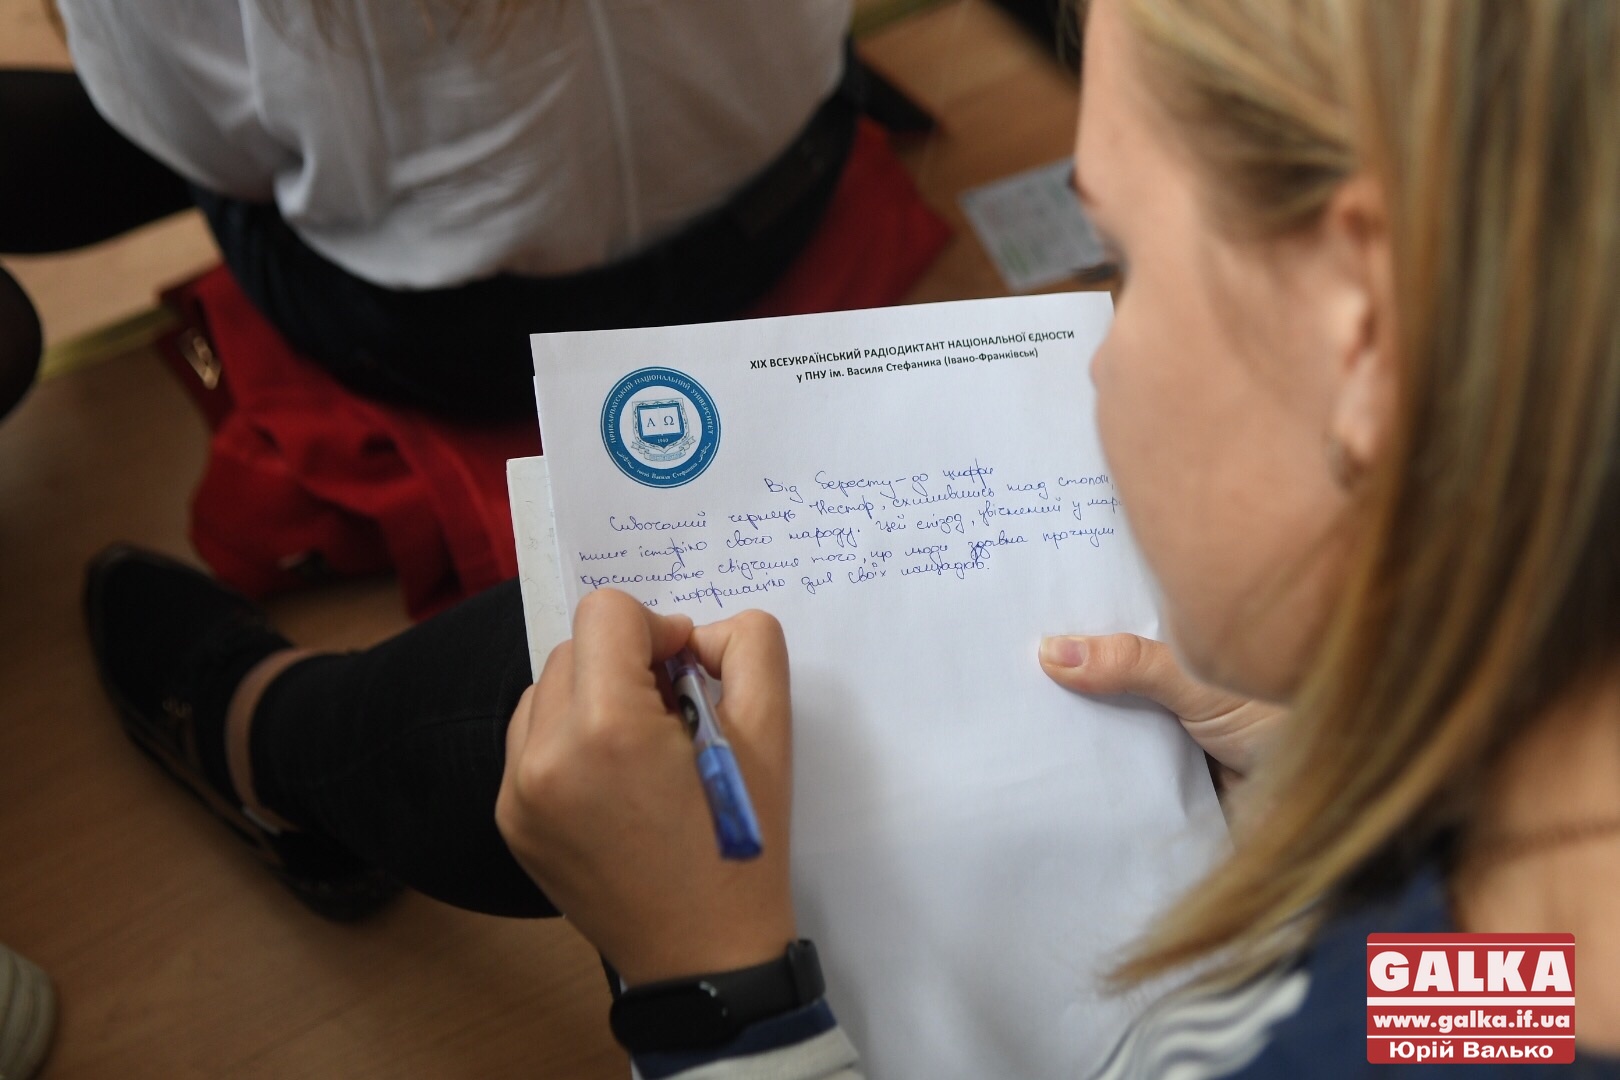 XIX ВСЕУКРАЇНСЬКИЙ РАДІОДИКТАНТ НАЦІОНАЛЬНОЇ ЄДНОСТИ
у ПНУ ім. Василя Стефаника (Івано-Франківськ)
ПРИКАРПАТСЬКИЙ НАЦІОНАЛЬНИЙ УНІВЕРСИТЕТ
імені Василя Стефаника
Α Ω
1940
Від бересту - до цифри
Сивочолий чернець Нестор, схилившись над столом,
пише історію свого народу. Цей епізод, увічнений у
красномовне свідчення того, що люди здавна прагнули
інформацію для своїх нащадків.
GALKA
www.galka.if.ua
Юрій Валько